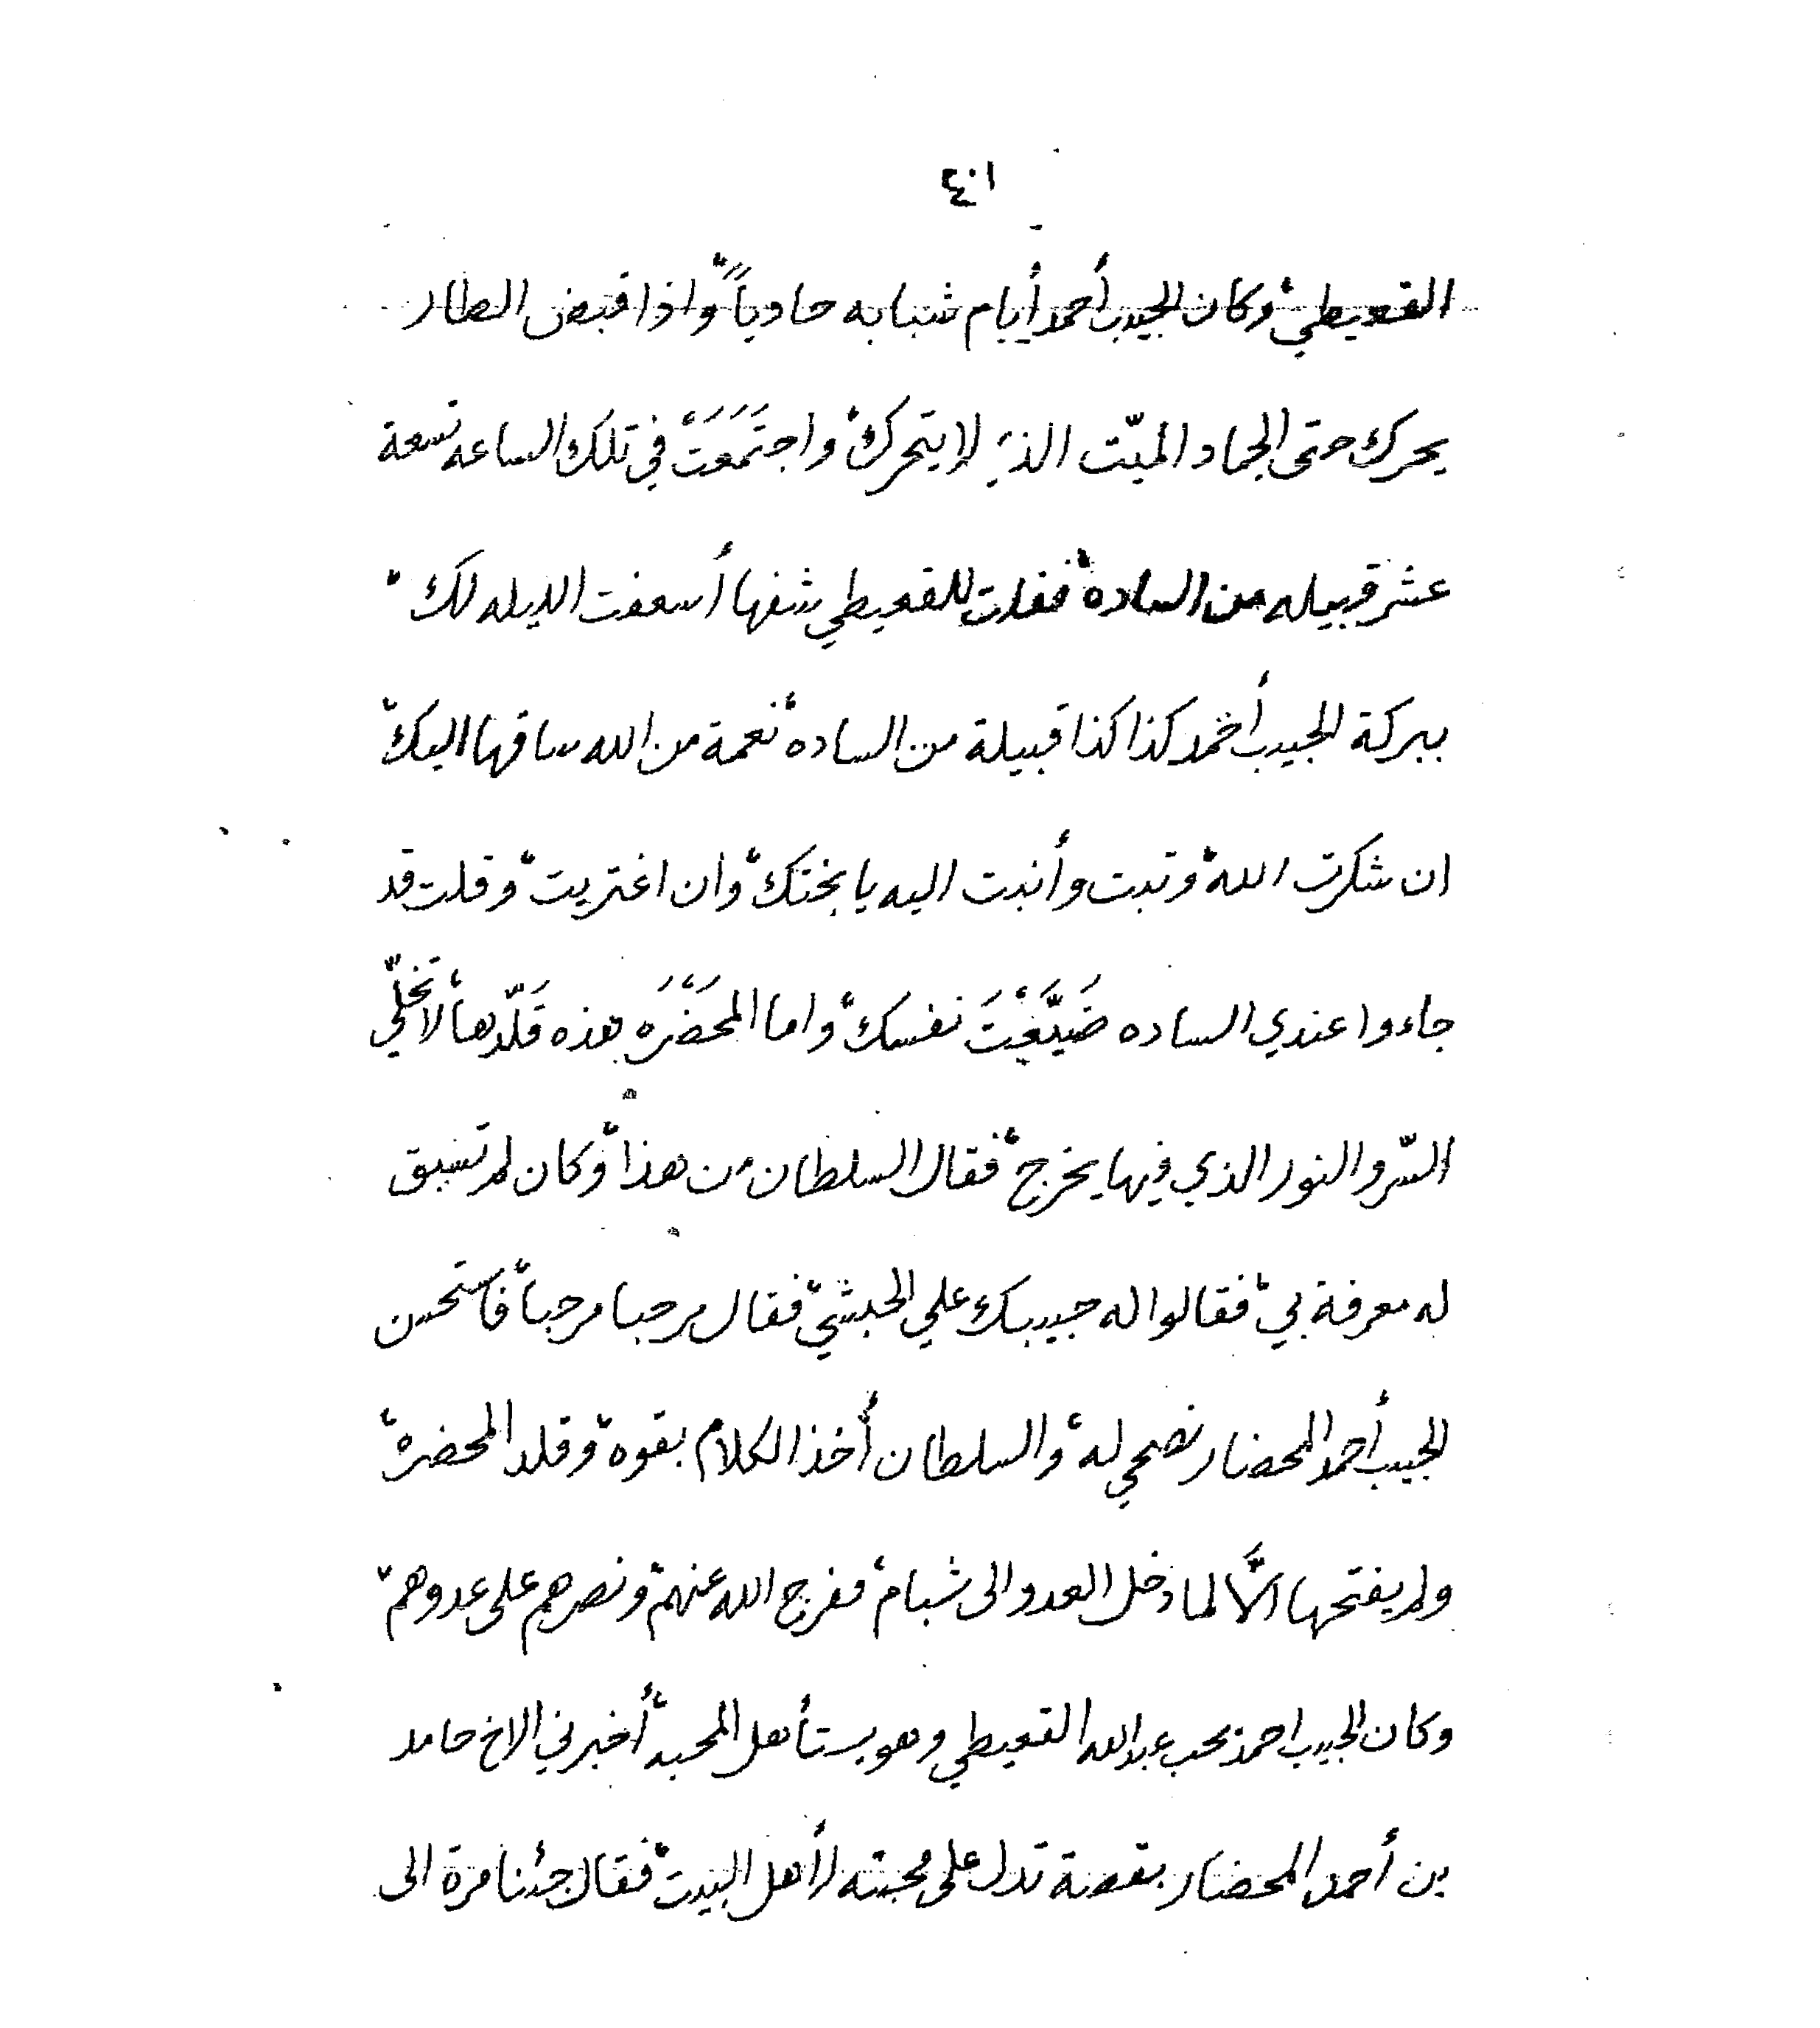 ١٠٤
القعيطي، وكان الحبيب أحمد أيام شبابه حادياً، واذا قبض الطار
يحرك حتى الجماد الميّت الذي لا يتحرك، واجتَمَعَتْ في تلك الساعه تسعة
عشر قبيله من الساده، فقلت للقعيطي شفها أسعفت الليله لك،
ببركة الحبيب أحمد كذا كذا قبيلة من الساده، نعمة من الله ساقها اليك،
ان شكرت الله، وتبت وأنبت اليه يا بختك، وان اغتريت، وقلت قد
جاءوا عندي الساده ضَيَّعْتَ نفسك، واما المحَضْرَه هذه قَلّدها، لا تخلّي
السّر والنور الذي فيها يخرج، فقال السلطان من هذا، وكان لم تسبق
له معرفة بي، فقالوا له حبيبك علي الحبشي، فقال مرحبا مرحبا، فاستحسن
الحبيب أحمد المحضار نصحي له، والسلطان أخذ الكلام بقوه، وقلد المحضره،
ولم يفتحها الاَّ لما دخل العدو الى شبام، ففرج الله عنهم، ونصرهم على عدوهم،
وكان الحبيب احمد يحب عبدالله القعيطي وهو يستأهل المحبه، أخبرني الاخ حامد
بن أحمد المحضار بقصة تدل على محبته لأهل البيت، فقال جئنا مرة الى